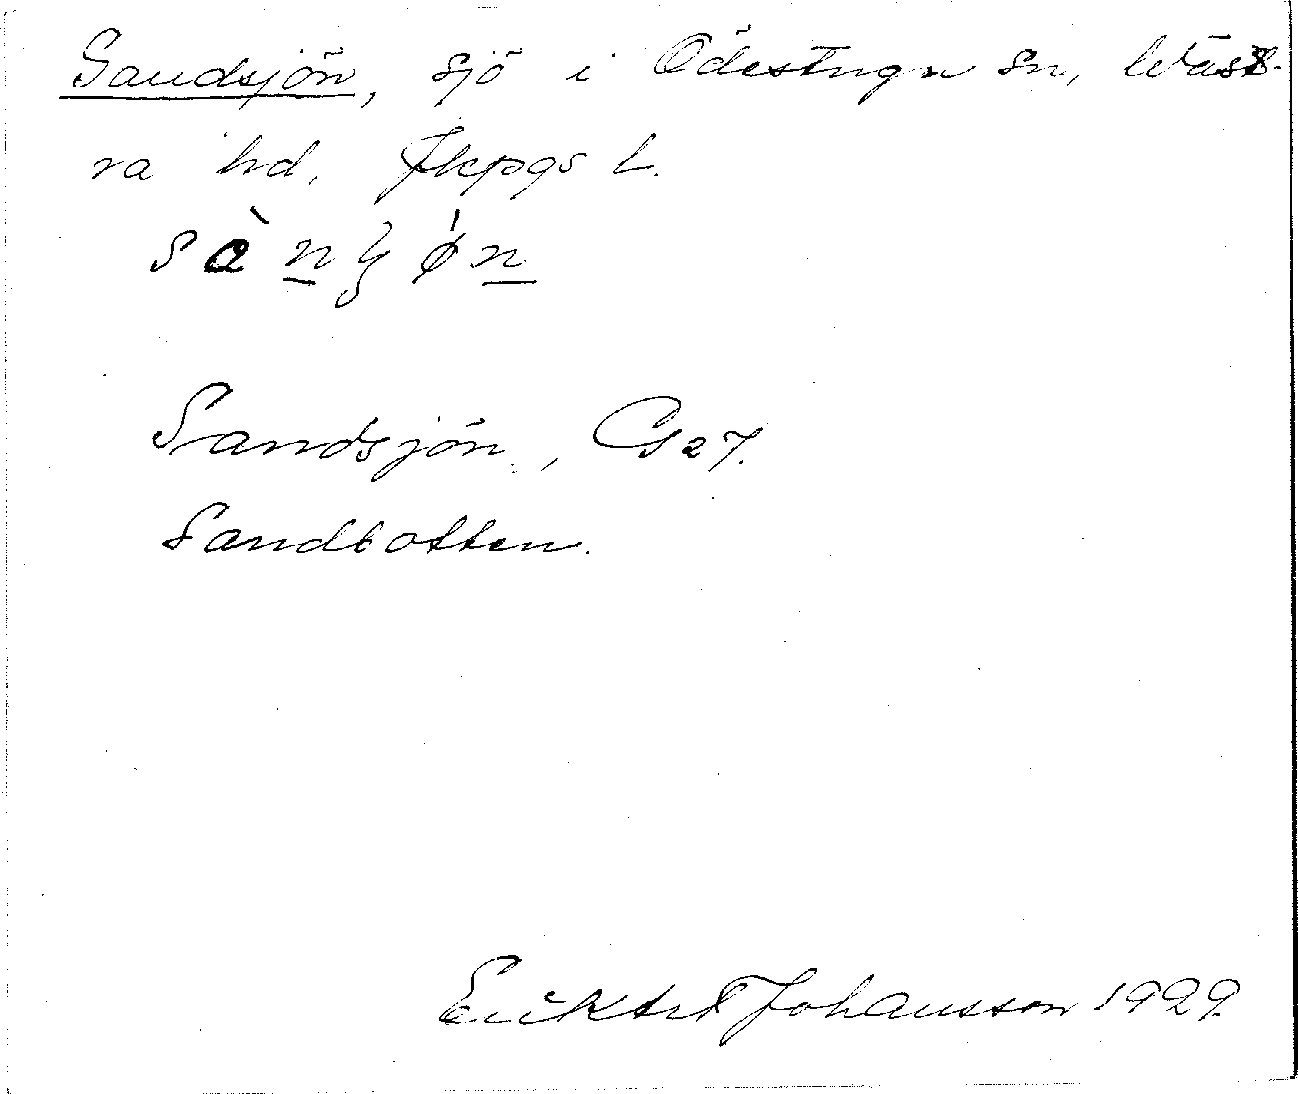 Sandsjön, sjö i Ödestugu sn, Väst-
ra hd, Jkpgs L.
Sandsjön, G27.
Sandbotten.
Johansson 1929.